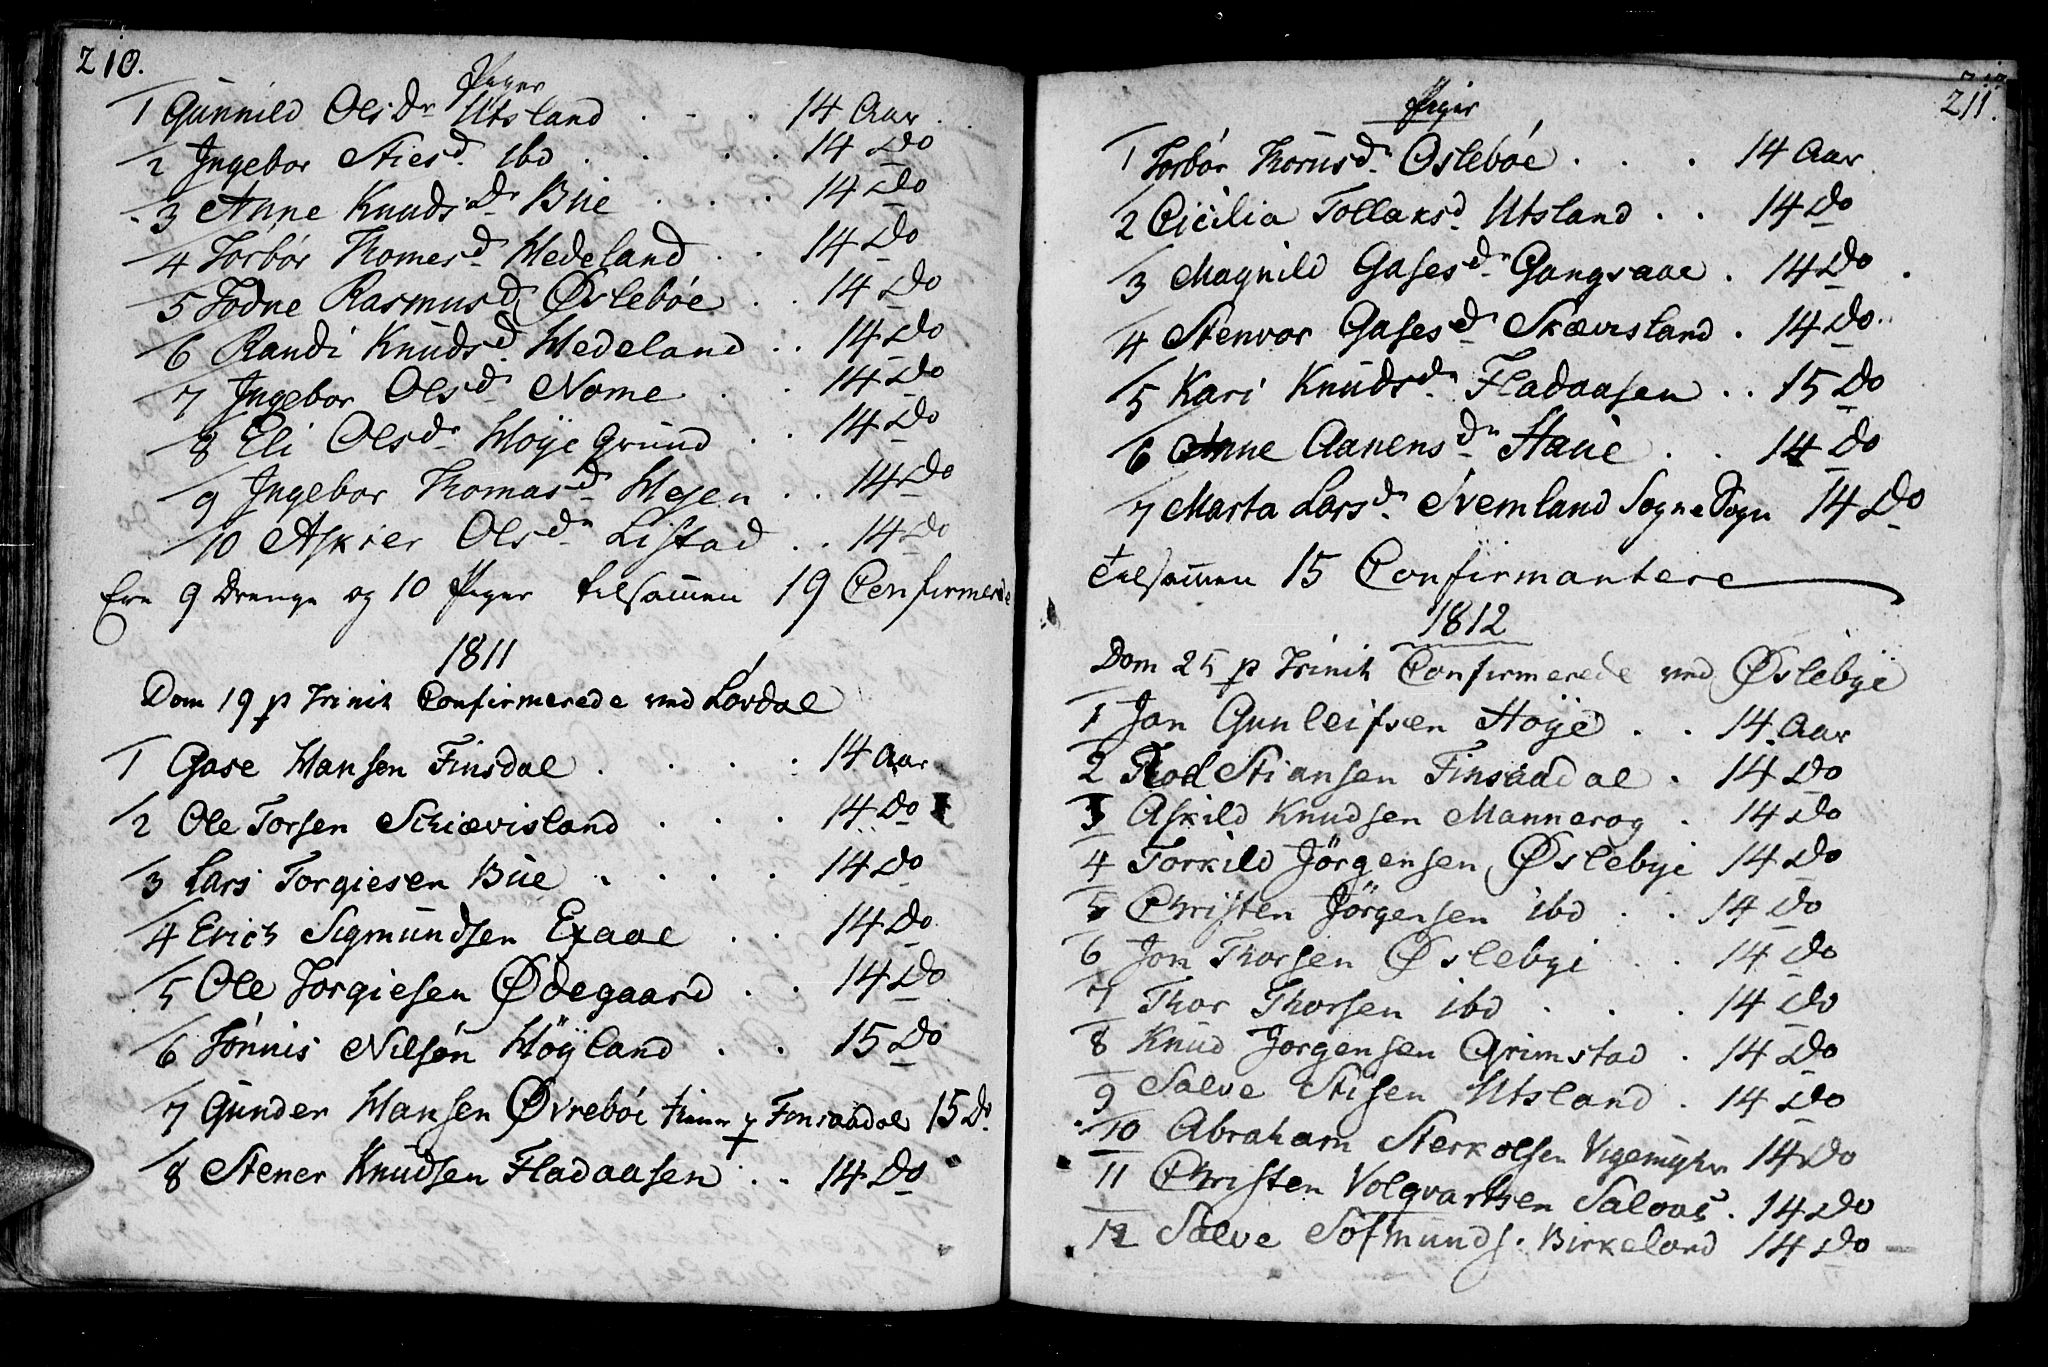 210.
Piger
1 Gunnild Olsdr Utsland . . . 14 Aar
2 Ingebor Stiesd. ibd . . . . 14 Do
3 Anne Knudsdr Bue . . . 14 Do
4 Torbör Thomesd. Hedeland . . 14 Do
5 Todne Rasmusd. Øslebøe . . 14 Do
6 Randi Knudsd. Hedeland . . 14 Do
7 Ingebor Olsd. Nome . . 14 Do
8 Eli Olsdr Höye grund . . 14 Do
9 Ingebor Thomasd. Hesen . . 14 Do
10 Askier Olsdr Listad . . 14 Do
Ere 9 Drenge og 10 Piger tilsamen 19 Confirmerde
1811
Dom 19 p Trinit Confirmerede ved Lovdal
1 Gase Hansen Finsdal . . . . 14 Aar
2 Ole Torsen Schiævisland . . . 14 Do
3 Lars Torgiesen Bue . . . . 14 Do
4 Erich Sigmundsen Exaal . . 14 Do
5 Ole Torgiesen Ødegaard . . 14 Do
6 Tönnis Nilsøn Höyland . . 15 Do
7 Gunder Hansen Øvrebøe tiener p Finsaadal 15 Do
8 Stener Knudsen Fladaasen . . 14 Do
211.
Piger
1 Torbør Thorusd. Oslebøe . . . 14 Aar
2 Cicilia Tollaksd. Utsland . . 14 Do
3 Magnild Gasesdr Gangsaae . 14 Do
4 Stenvor Gasesdr Skævisland . 14 Do
5 Kari Knudsdr Fladaasen . . 15 Do
6 Anne Aanensdr Haue . . 14 Do
7 Marta Larsdr Svemland Sogne Sogn 14 Do
tilsamen 15 Confirmantere
1812
Dom 25 p Trinit Confirmerede ved Øslebye
1 Jon Gunleifsen Höye . . 14 Aar
2 Stiansen Finsaadal . 14 Do
3 Askild Knudsen Mannerog . 14 Do
4 Torkild Jörgensen Øslebye 14 Do
5 Christen Jörgensen ibd . . 14 Do
6 Jon Thorsen Øslebye . . 14 Do
7 Thor Thorsen ibd . . . 14 Do
8 Knud Jorgensen Grimstad . 14 Do
9 Salve Stisen Utsland . 14 Do
10 Abraham Sterkolsen Vigemyhr 14 Do
11 Christen Volqvartsen Saloas . 14 Do
12 Salve Sofmunds. Birkeland 14 Do